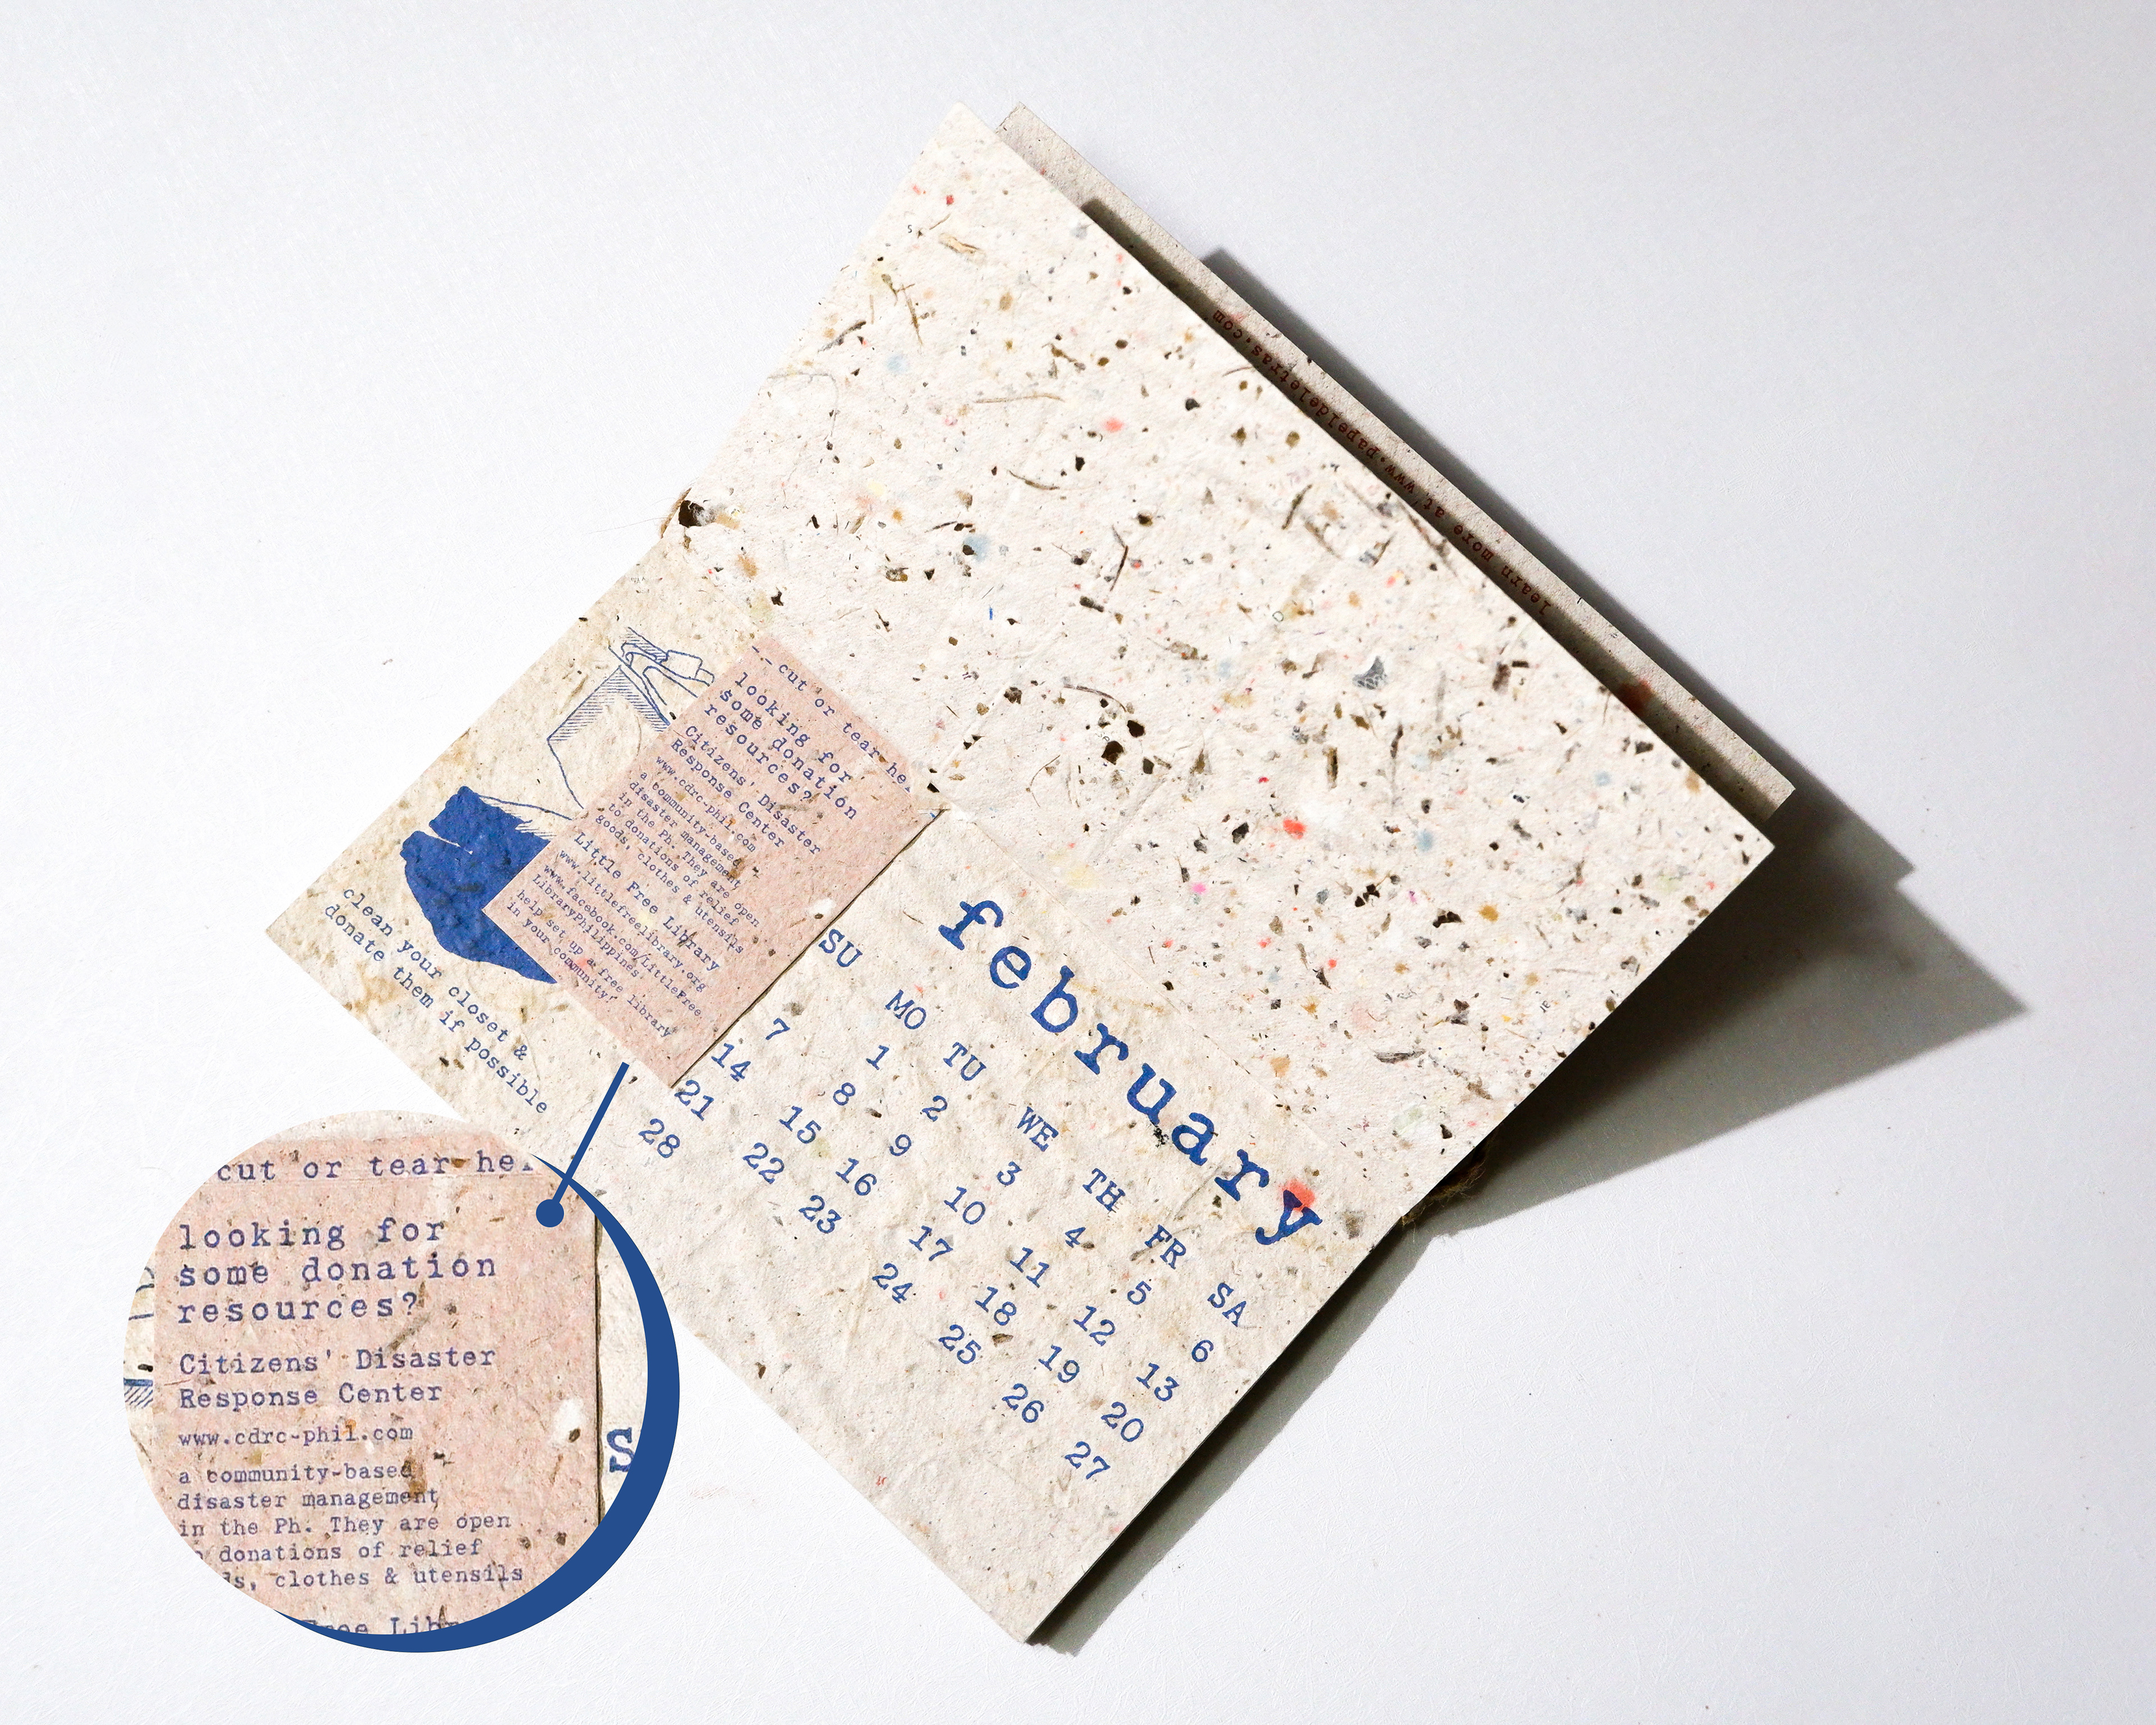 learn more at www.papeldeletras.com
-.- cut or tear her
looking for
some donation
resources?
Citizens' Disaster
Response Center
www.cdrc-phil.com
a community-based
disaster management
in the Ph. They are open
to donations of relief
goods, clothes & utensils
Little Free Library
www.littlefreelibrary.org
www.facebook.com/LittleFree
LibraryPhilippines
help set up a free library
in your community!
clean your closet &
donate them if possible
february
SU MO TU WE TH FR SA
1 2 3 4 5 6
7 8 9 10 11 12 13
14 15 16 17 18 19 20
21 22 23 24 25 26 27
28
cut or tear her
looking for
some donation
resources?
Citizens' Disaster
Response Center
www.cdrc-phil.com
a community-based
disaster management
in the Ph. They are open
donations of relief
ds, clothes & utensils
Free Libr
S